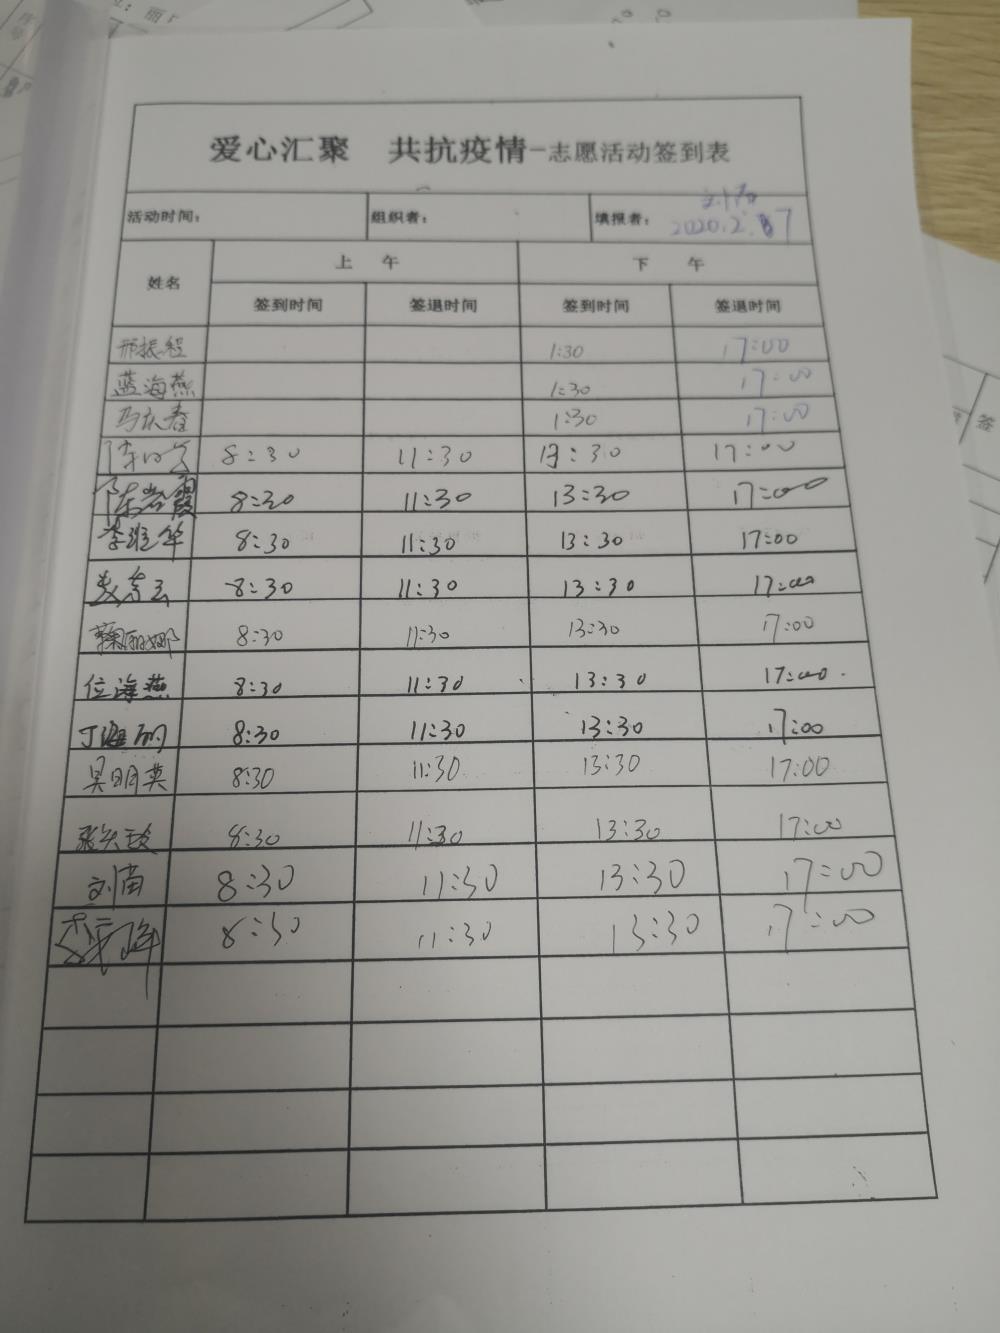 爱心汇聚 共抗疫情-志愿活动签到表
活动时间： 组织者： 填报者：
2020.2.17
姓名 上午 下午
签到时间 签退时间 签到时间 签退时间
邢振程 1:30 17:00
蓝海燕 1:30 17:00
马庆春 1:30 17:00
8:30 11:30 13:30 17:00
陈岩霞 8:30 11:30 13:30 17:00
李维华 8:30 11:30 13:30 17:00
8:30 11:30 13:30 17:00
鞠丽娜 8:30 11:30 13:30 17:00
位海燕 8:30 11:30 13:30 17:00
丁海丽 8:30 11:30 13:30 17:00
吴明英 8:30 11:30 13:30 17:00
8:30 11:30 13:30 17:00
刘苗 8:30 11:30 13:30 17:00
8:30 11:30 13:30 17:00
签